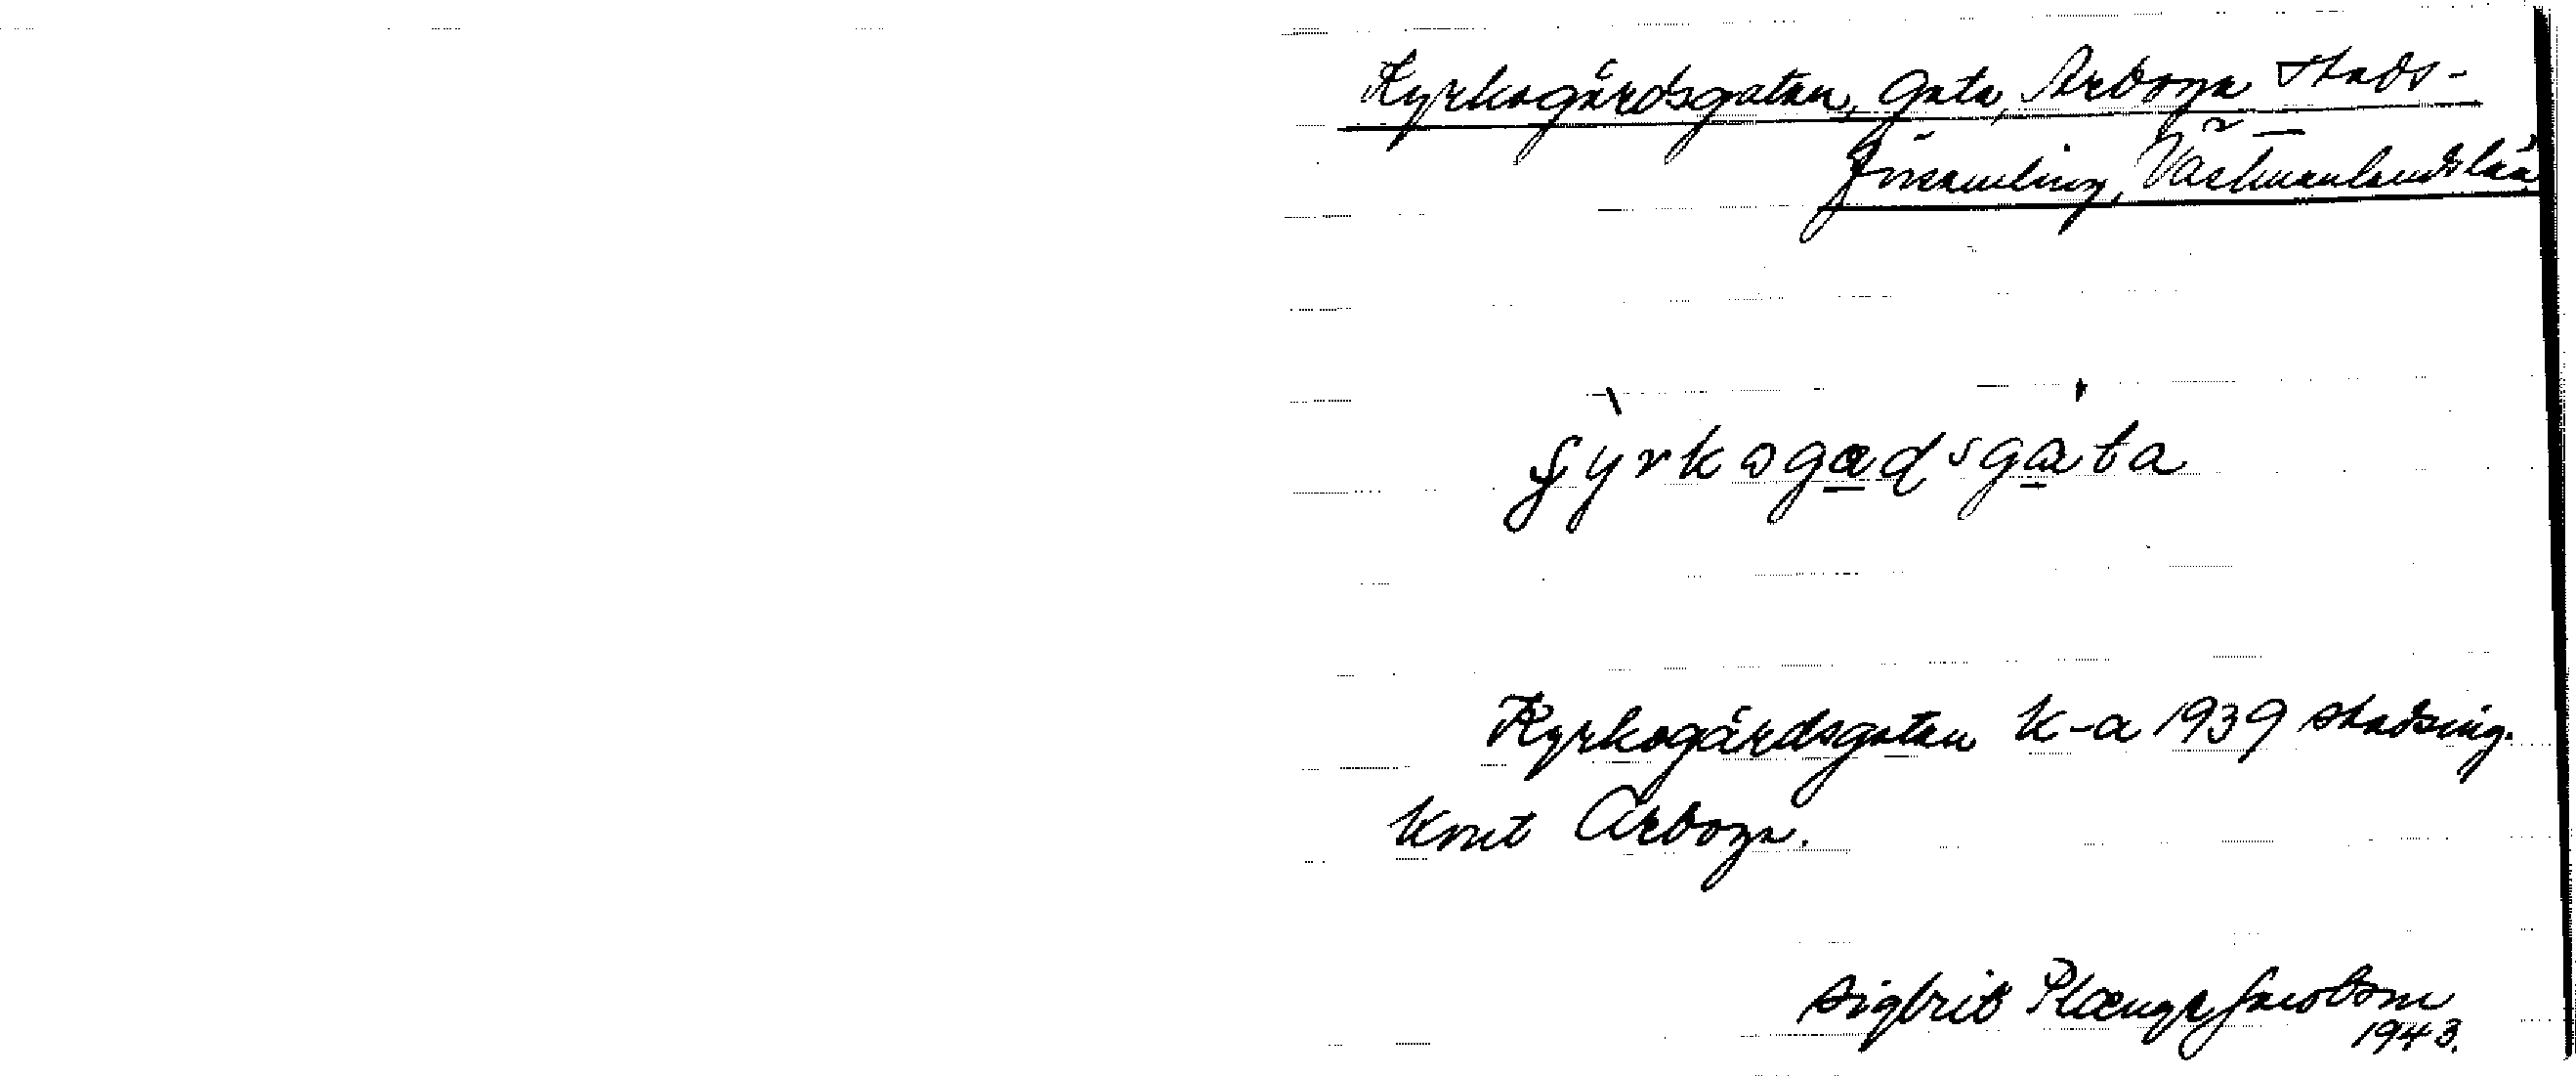 Kyrkogårdsgatan, gata, Arboga stads-
församling, Västmanlands län
Kyrkogårdsgatan k-a 1939 stadsing.
kont Arboga.
Sigbrit Plænge Jacobson
1943.